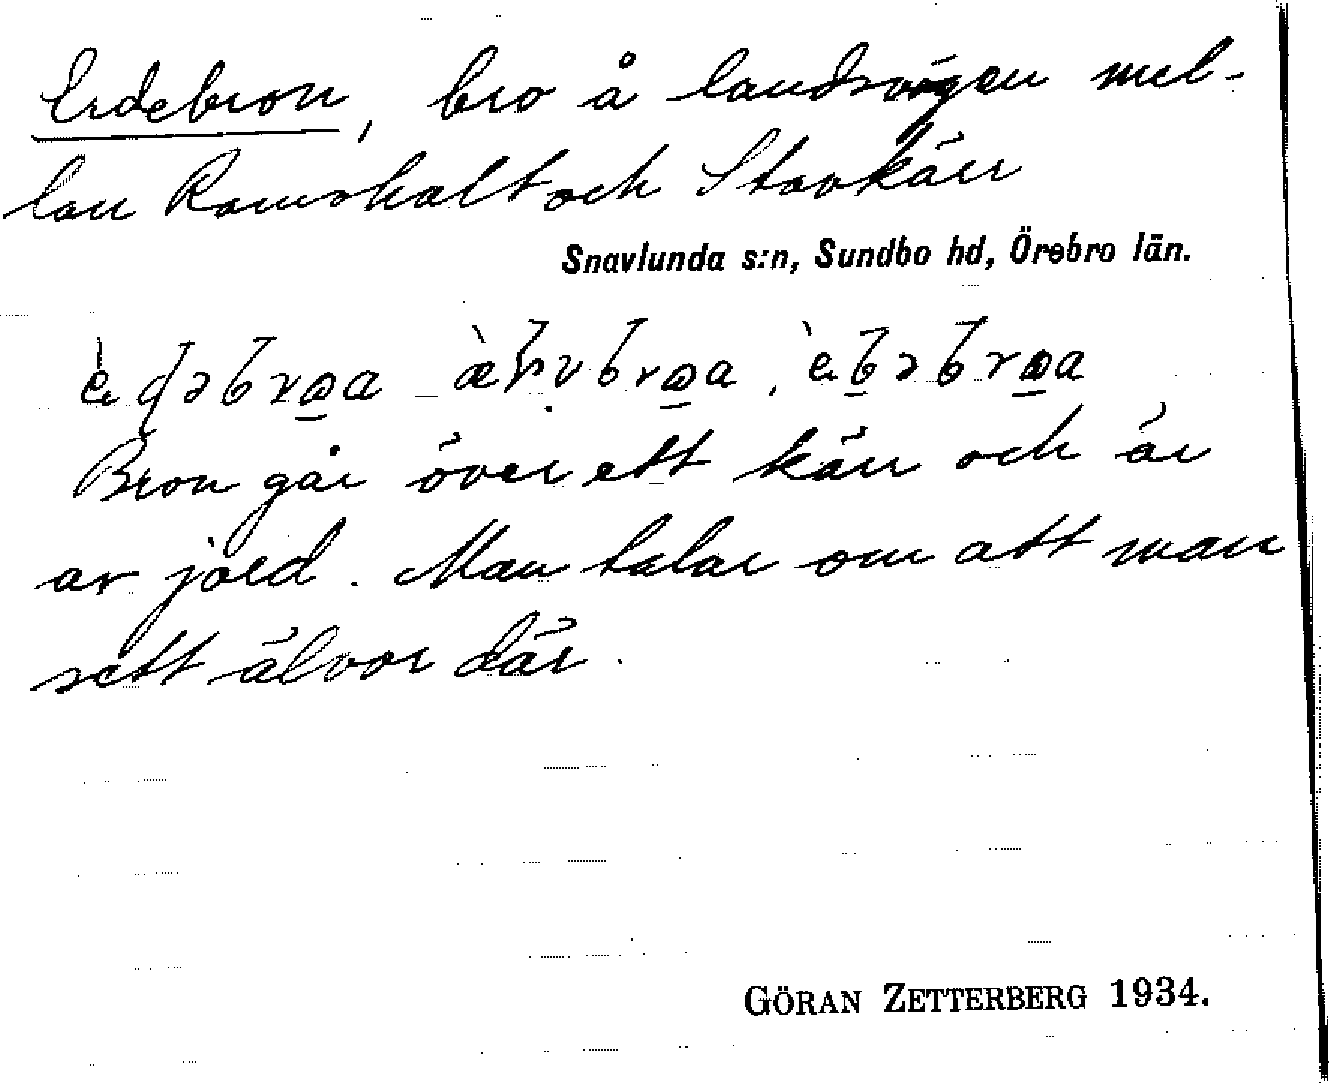 Erdebron, bro å landsvägen mel-
lan Ramshalt och Stavkärr
Snavlunda s:n, Sundbo hd, Örebro län.
Bron går över ett kärr och är
av jord. Man talar om att man
sett älvor där.
GÖRAN ZETTERBERG 1934.